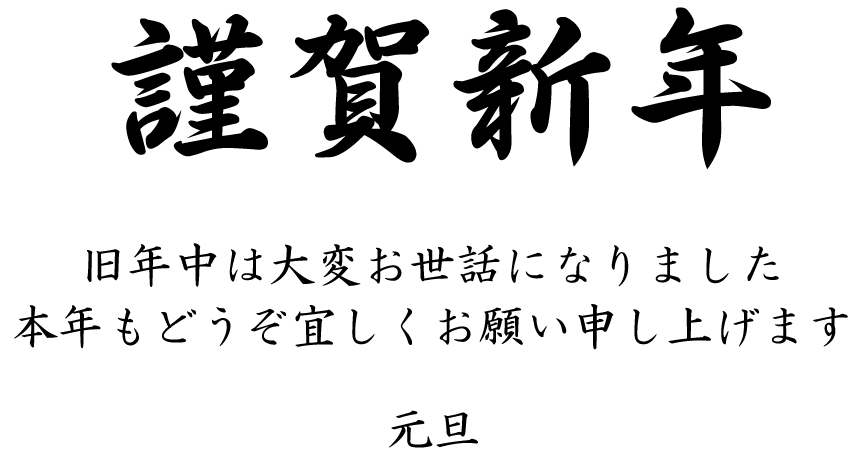 謹賀新年
旧年中は大変お世話になりました
本年もどうぞ宜しくお願い申し上げます
元旦